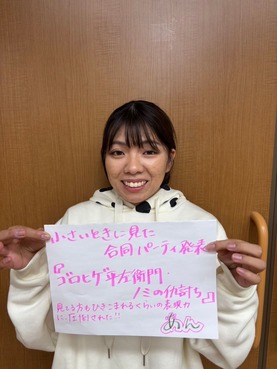 小さいときに見た
合同パーティ発表
『
ゴロヒゲ平左衛門・
ノミの仇討ち』
見てる方もひきこまれるくらいの表現力
に、圧倒された!!
あん